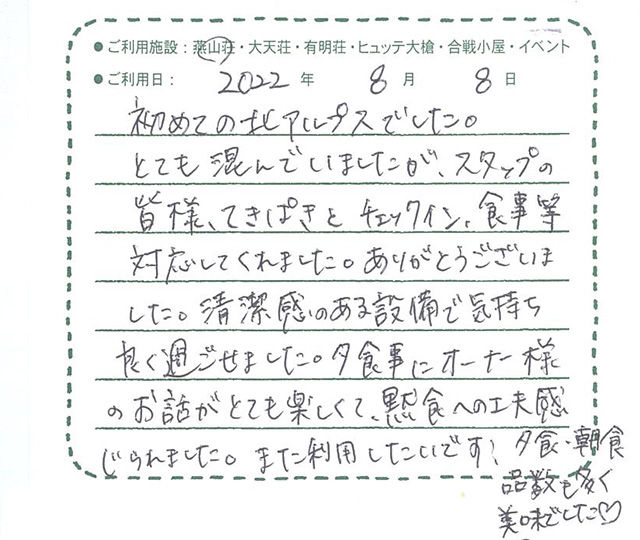 ●ご利用施設：燕山荘・大天荘・有明荘・ヒュッテ大槍・合戦小屋・イベント
●ご利用日： 2022 年 8 月 8 日
初めての北アルプスでした。
とても混んでいましたが、スタッフの
皆様、てきぱきと チェックイン、食事等
対応してくれました。ありがとうございま
した。清潔感のある設備で気持ち
良く過ごせました。夕食事にオーナー様
のお話がとても楽しくて、黙食への工夫感
じられました。また利用したいです！
夕食・朝食
品数も多く
美味でした♡